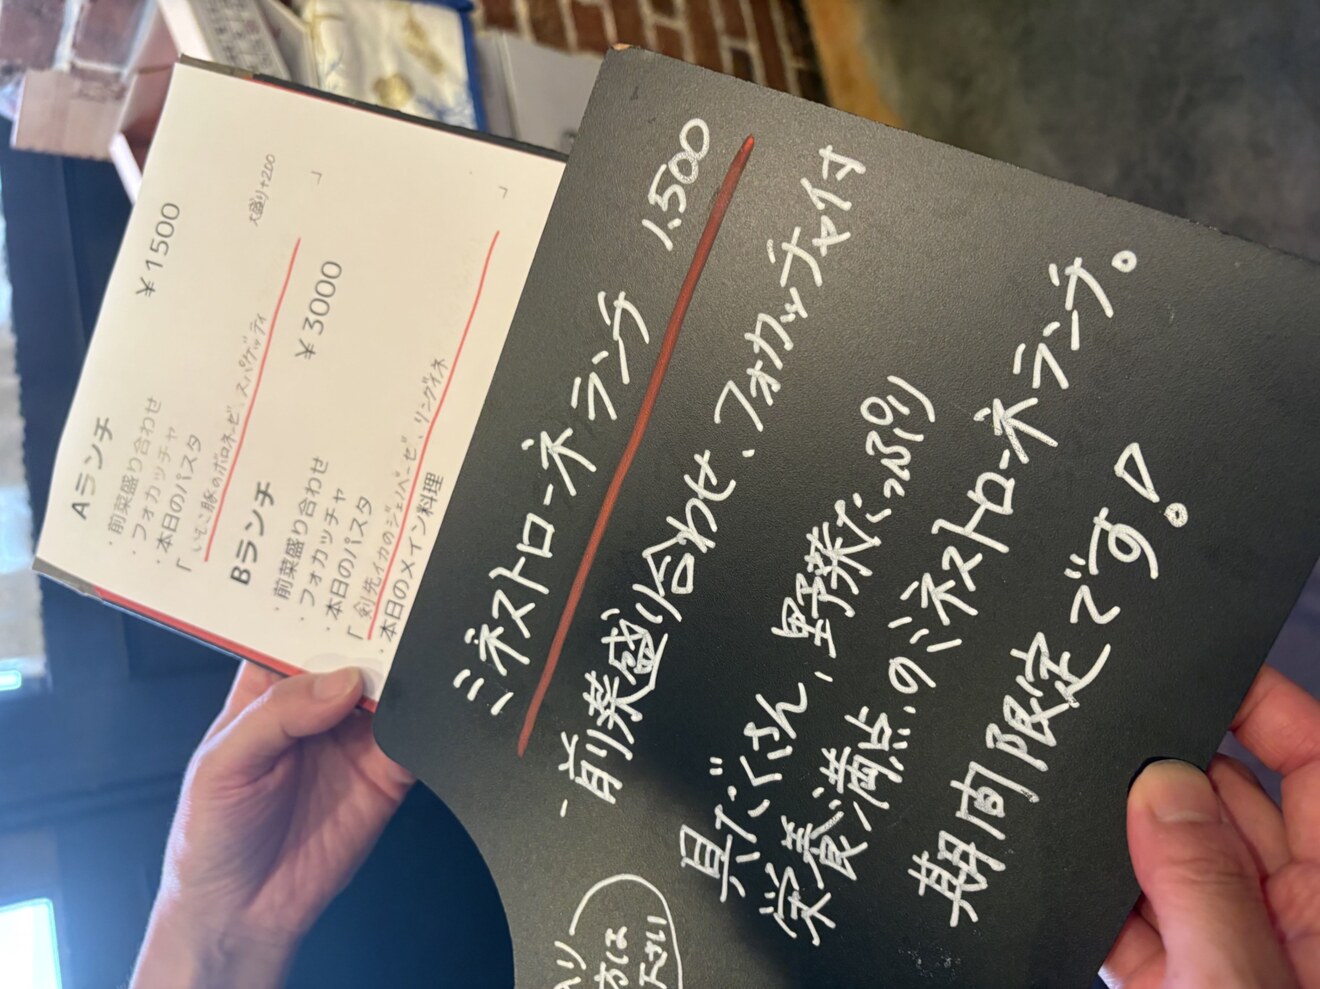 Aランチ ¥1500
・前菜盛り合わせ
・フォカッチャ
・本日のパスタ 大盛り+200
「いもこ豚のボロネーゼ、スパゲッティ 」
Bランチ ¥3000
・前菜盛り合わせ
・フォカッチャ
・本日のパスタ
「剣先イカのジェノベーゼ、リングイネ 」
・本日のメイン料理
ミネストローネランチ 1,500
・前菜盛り合わせ、フォカッチャ付
具だくさん、野菜たっぷり
栄養満点、のミネストローネランチ。
期間限定です!
方は
下さい